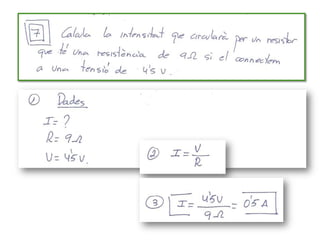 7 Calcula la intensitat que circularà per un resistor
que té una resistència de 9Ω si el connectem
a una tensió de 4'5 V.
① Dades
I = ?
R = 9Ω
V = 4'5V.
② I = V/R
③ I = 4'5V/9Ω = 0'5 A